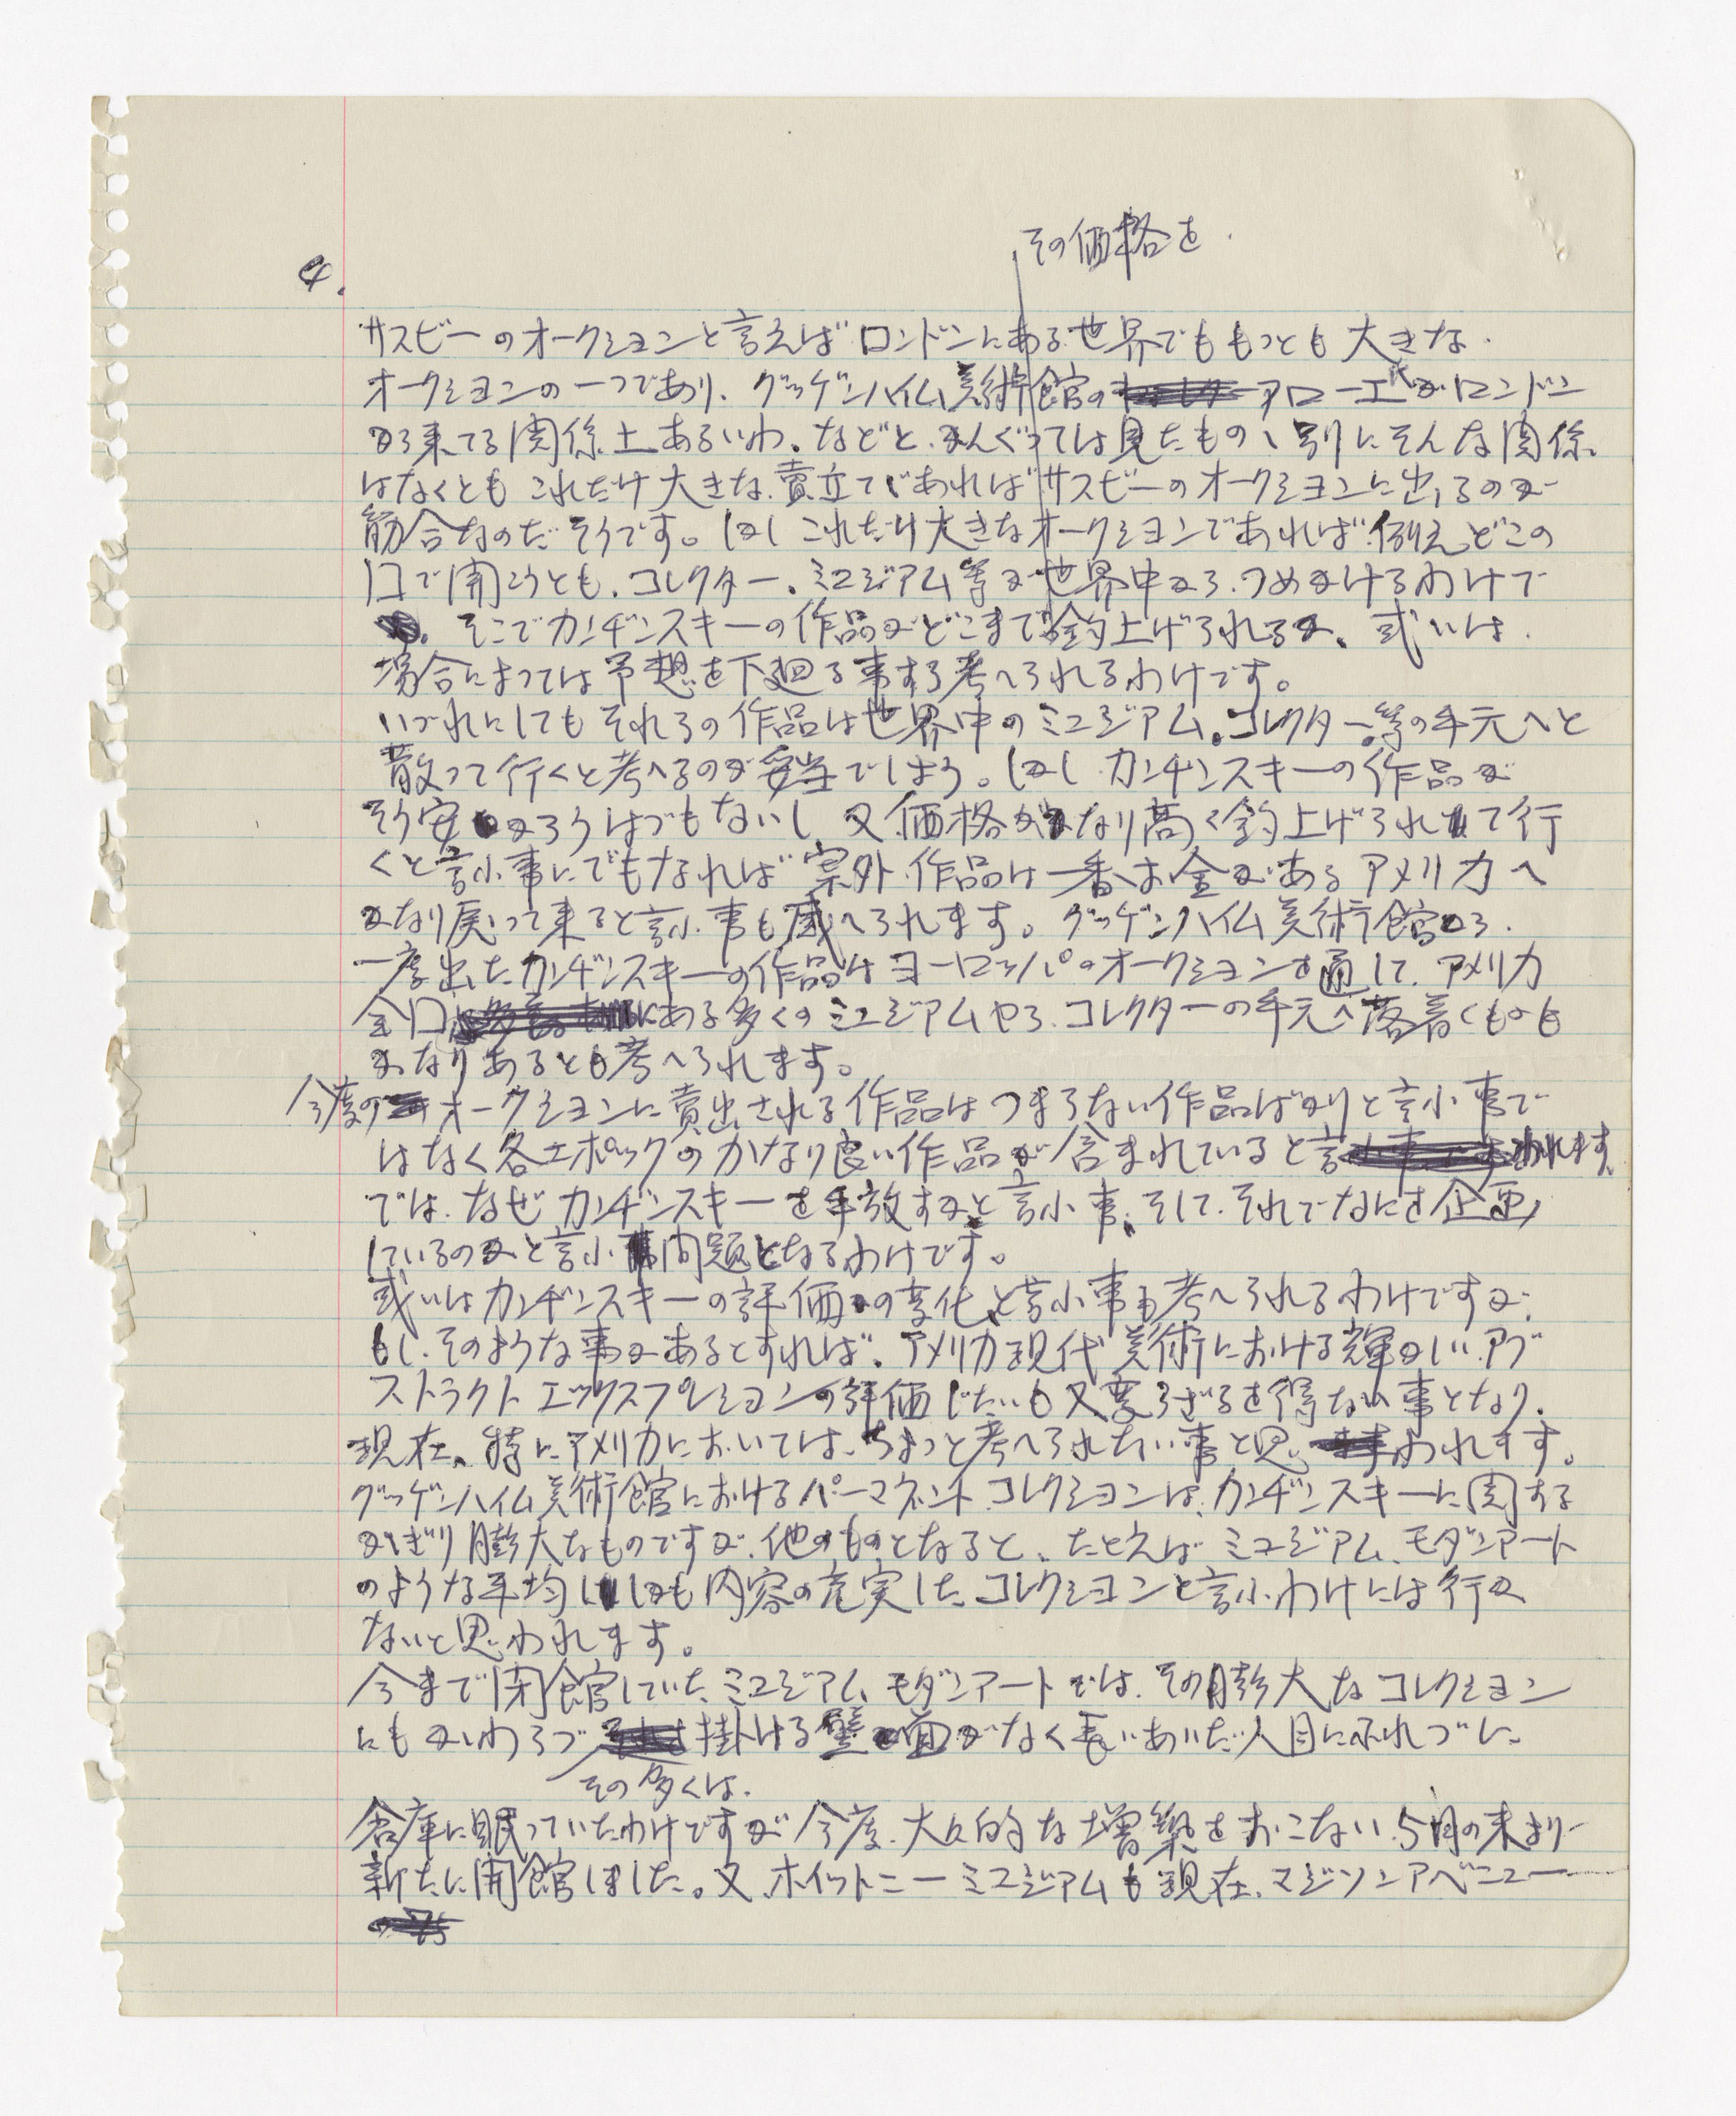 その価格を
4.
サスビーのオークションと言えばロンドンにある世界でももっとも大きな
オークションの一つであり、グッゲンハイム美術館の アローエ氏がロンドン
から来てる関係上あるいわ、などと、かんぐっては見たもの、別にそんな関係
はなくとも これだけ大きな賣立てであればサスビーのオークションに出るのが
筋合なのだそうです。しかしこれだけ大きなオークションであれば例えどこの
口で開こうとも、コレクター、ミユジアム等が世界中から、つめかけるわけで
そこでカンヂンスキーの作品がどこまで釣上げられるか、或いは
場合によっては予想を下廻る事すら考へられるわけです。
いづれにしてもそれらの作品は世界中のミユジアム、コレクター等の手元へと
散って行くと考へるのが妥当でしょう。しかしカンヂンスキーの作品が
そう安かろうはづもないし、又価格がかなり高く釣上げられて行
くと言ふ事にでもなれば案外作品は一番お金があるアメリカへ
かなり戻って来ると言ふ事も考へられます。グッゲンハイム美術館から
一度出たカンヂンスキーの作品はヨーロッパのオークションを通して、アメリカ
全口にある多くのミユジアムやら、コレクターの手元へ落着くものも
かなりあるとも考へられます。
今度のオークションに賣出される作品はつまらない作品ばかりと言ふ事で
はなく各エポックのかなり良い作品が含まれていると言われます。
では、なぜカンヂンスキーを手放すかと言ふ事、そして、それでなにを企画
しているのかと言ふ問題となるわけです。
或いはカンヂンスキーの評価の変化と言ふ事も考へられるわけですが、
もし、そのような事があるとすれば、アメリカ現代美術における輝かしいアブ
ストラクトエックスプレションの評価じたいも又変らざるを得ない事となり、
現在、特にアメリカにおいては、ちょっと考へられない事と思われます。
グッゲンハイム美術館におけるパーマネントコレクションは、カンヂンスキーに関する
かぎり膨大なものですが、他のものとなると、たとえばミユジアム、モダンアート
のような平均ししかも内容の充実したコレクションと言ふわけには行か
ないと思われます。
今まで閉館していたミユジアム、モダンアートでは、その膨大なコレクション
にもかかわらづ 掛ける壁面がなく長いあいだ人目にふれづに
その多くは、
倉庫に眠っていたわけですが今度、大々的な増築をおこない、5月の末より
新たに開館しました。又、ホイットニーミユジアムも現在、マジソンアベニュー